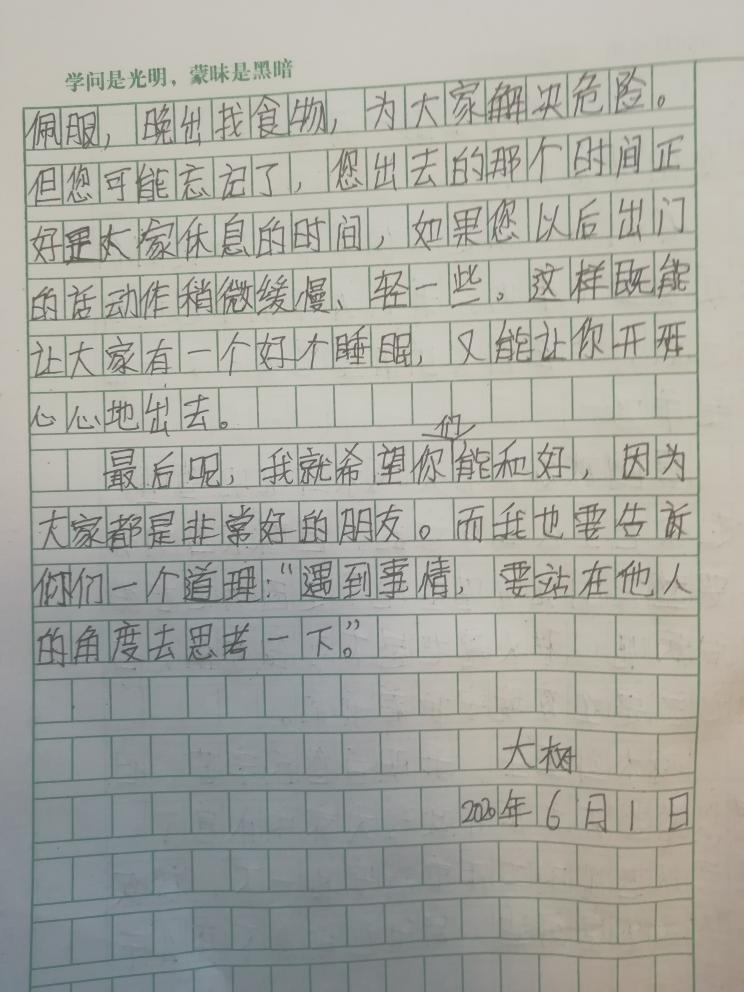 学问是光明，蒙昧是黑暗
佩服，晚出找食物，为大家解决危险。
但您可能忘记了，您出去的那个时间正
好是大家休息的时间，如果您以后出门
的话动作稍微缓慢、轻一些。这样既能
让大家有一个好个睡眠，又能让你开开
心心地出去。
最后呢，我就希望你们能和好，因为
大家都是非常好的朋友。而我也要告诉
你们一个道理：“遇到事情，要站在他人
的角度去思考一下”。
大树
2020年6月1日